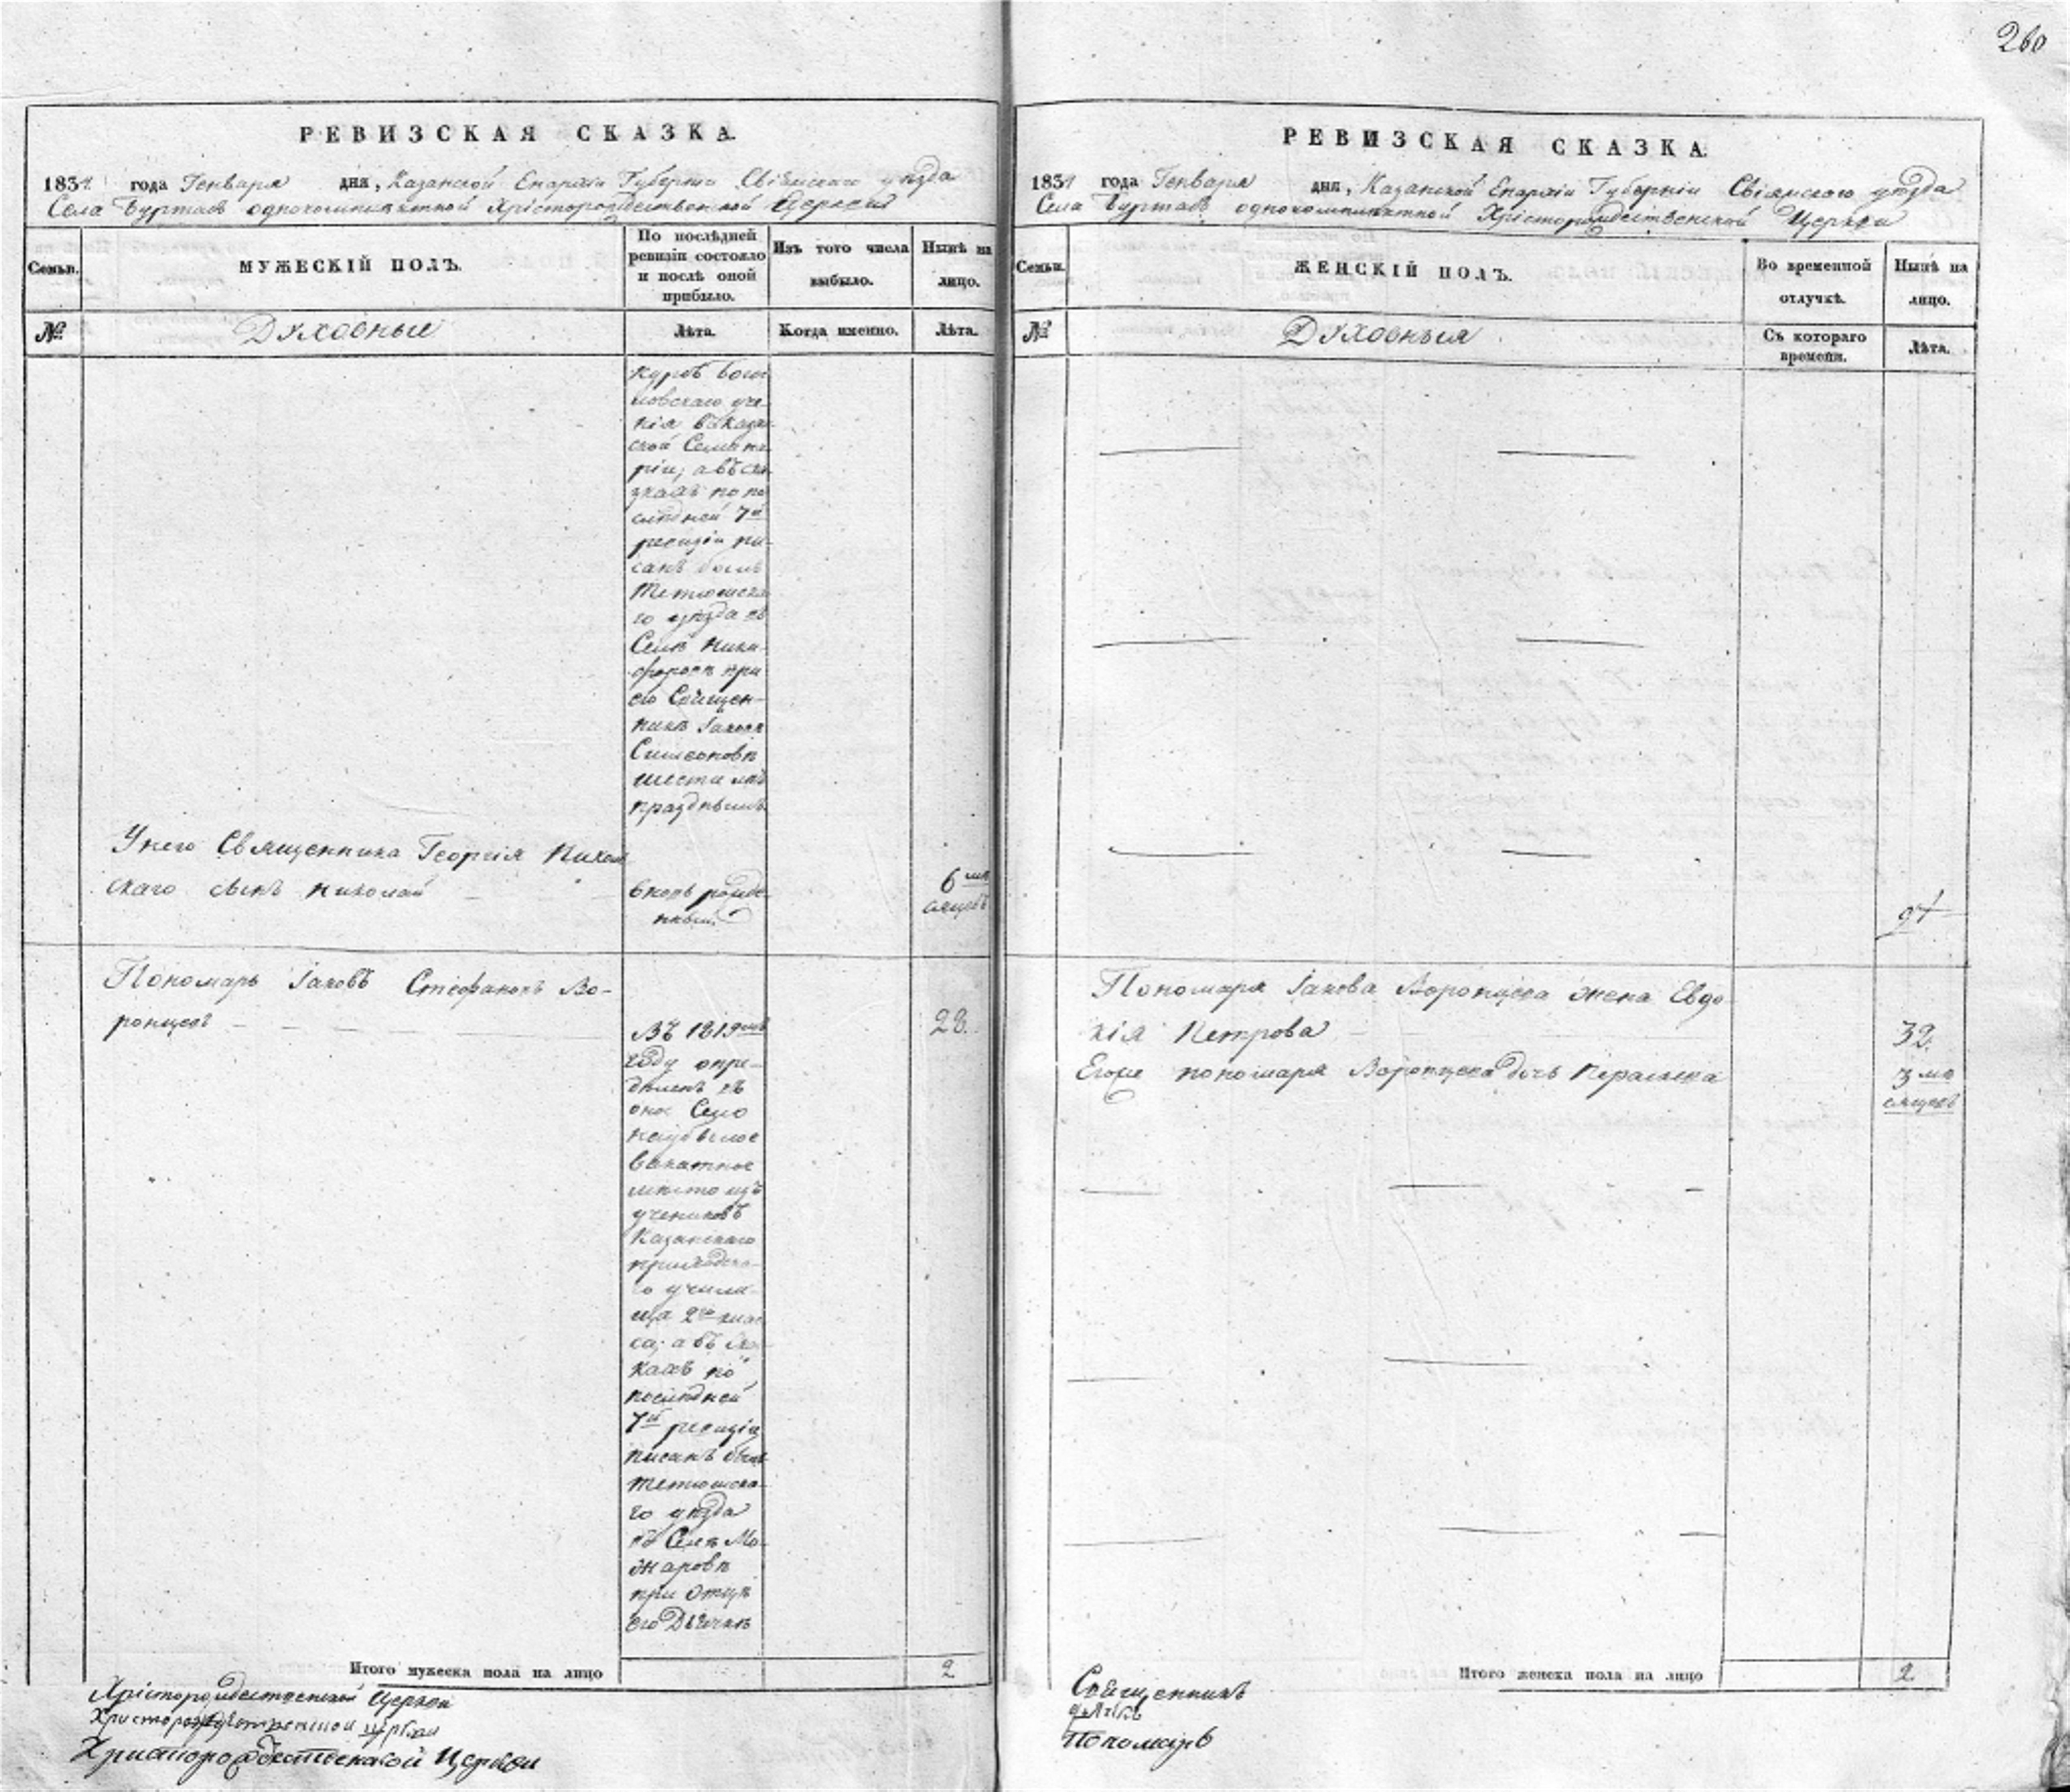 260
РЕВИЗСКАЯ СКАЗКА.
1834 года Генваря дня, Казанской Епархіи Губерніи Свіяжскаго уѣзда
Села Буртасъ однокомплектной Христорождественской Церкви
Семьи. МУЖЕСКІЙ ПОЛЪ. По послѣдней ревизіи состояло и послѣ оной прибыло. Изъ того числа выбыло. Нынѣ на лицо.
№ Духовные Лѣта. Когда именно. Лѣта.
курсъ Бого
словскаго уче
нія въ Казан
ской Семина
ріи, а въ ска
зкахъ по по
слѣдней 7й
ревизіи пи
санъ былъ
Тетюшска
го уѣзда въ
Селѣ Ники
форовѣ при
его Священ
никѣ Іаковѣ
Симеоновѣ
шести лѣтъ
празднымъ
У него Священника Георгія
скаго сынъ Николай вновь рожде 6 мѣ
нный сяцовъ
Пономарь Іаковъ Стефановъ Во-
ронцовъ Въ 1819мъ 28.
году опре-
дѣленъ въ
оное Село
на убылое
вакатное
мѣсто изъ
учениковъ
Казанскаго
приходска-
го учили-
ща 2го клас
са; а въ ска
кахъ по
послѣдней
7й ревизіи
писанъ былъ
Тетюшска
го уѣзда
въ Селѣ Мо
жаровѣ
при Отцѣ
его Дьячкѣ
Итого мужеска пола на лицо 2
Христорождественской Церкви
Христорождественской церкви
Христорождественской Церкви
РЕВИЗСКАЯ СКАЗКА.
1834 года Генваря дня, Казанской Епархіи Губерніи Свіяжскаго уѣзда
Села Буртасъ однокомплектной Христорождественской Церкви
Семьи. ЖЕНСКІЙ ПОЛЪ. Во временной отлучкѣ. Нынѣ на лицо.
№ Духовныя Съ котораго времени. Лѣта.
Пономаря Іакова Воронцова жена Евдо
кія Петрова 32.
Егоже пономаря Воронцова дочь 3 мѣ
сяцовъ
Итого женска пола на лицо 2
Священникъ
дьячёкъ
Пономарь